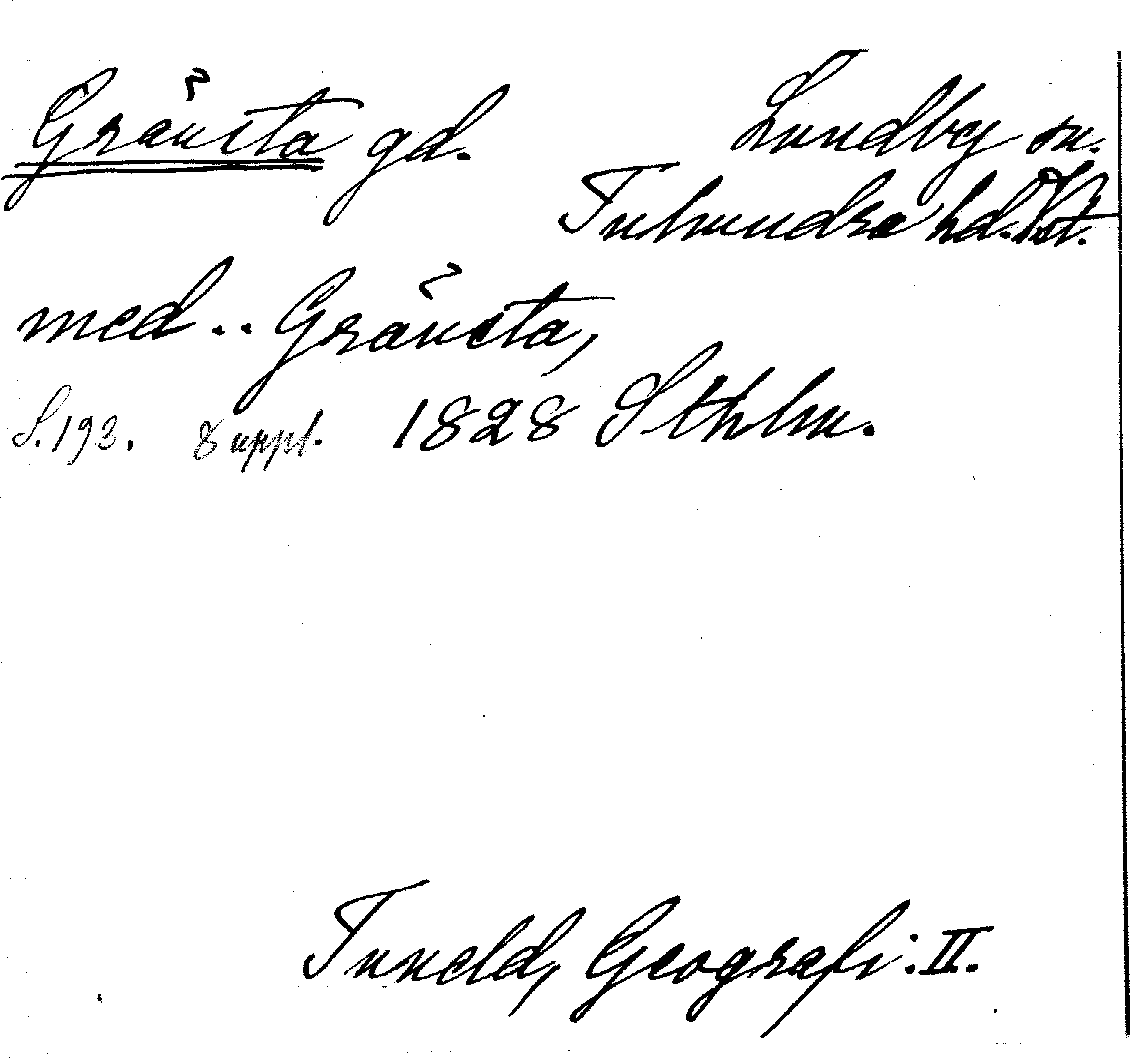 Gränsta gd. Lundby sn.
Tuhundra hd. Vst.
med .. Gränsta,
S. 193. Suppl. 1828 Sthlm.
Tuneld, Geografi. II.